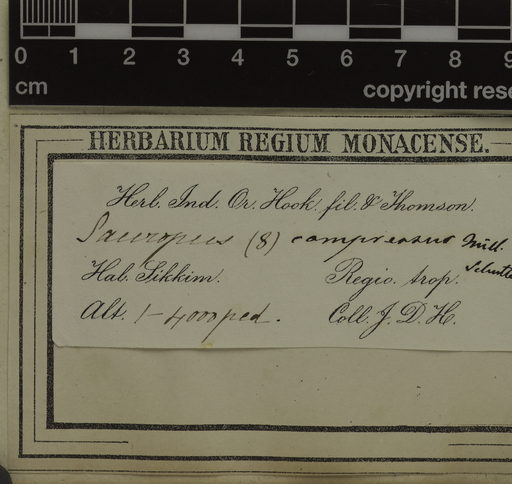 0 1 2 3 4 5 6 7 8 9
cm copyright rese
HERBARIUM REGIUM MONACENSE.
Herb. Ind. Or. Hook. fil. & Thomson.
Sauropus (8) compressus Müll.
Hab. Sikkim. Regio. trop.
Alt. 1-4000 ped. Coll. J. D. H.